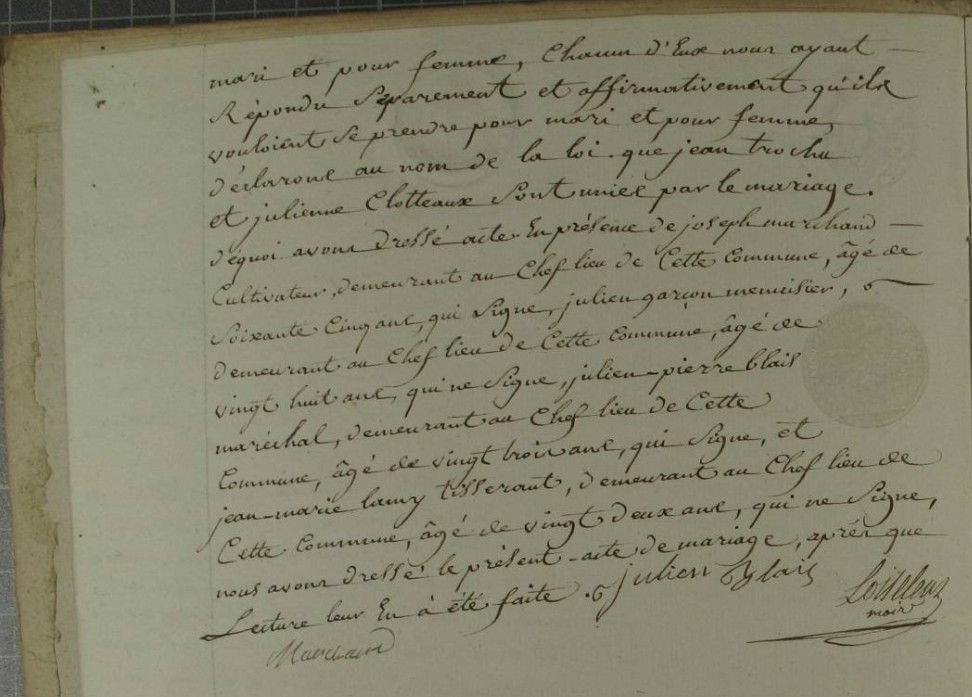 mari et pour femme, Chacun d'Eux nous ayant —
Répondu Séparement et affirmativement qu'ils
vouloient Se prendre pour mari et pour femme,
déclarons au nom de la loi. que jean trochu
et julienne Clotteaux Sont unies par le mariage.
déquoi avons dressé acte En présence de joseph marchand —
Cultivateur, demeurant au Chef lieu de Cette Commune, âgé de
Soixante Cinq ans, qui Signe, julien garçon menuisier,
demeurant au Chef lieu de Cette Commune, âgé de
vingt huit ans, qui ne Signe, julien-pierre blais
maréchal, demeurant au Chef lieu de Cette
Commune, âgé de vingt trois ans, qui Signe, et
jean-marie lamy tisserant, demeurant au Chef lieu de
Cette Commune, âgé de vingt deux ans, qui ne Signe,
nous avons dressé le présent acte de mariage, après que
Lecture leur En à été faite. julien Blais
maire
Marchand